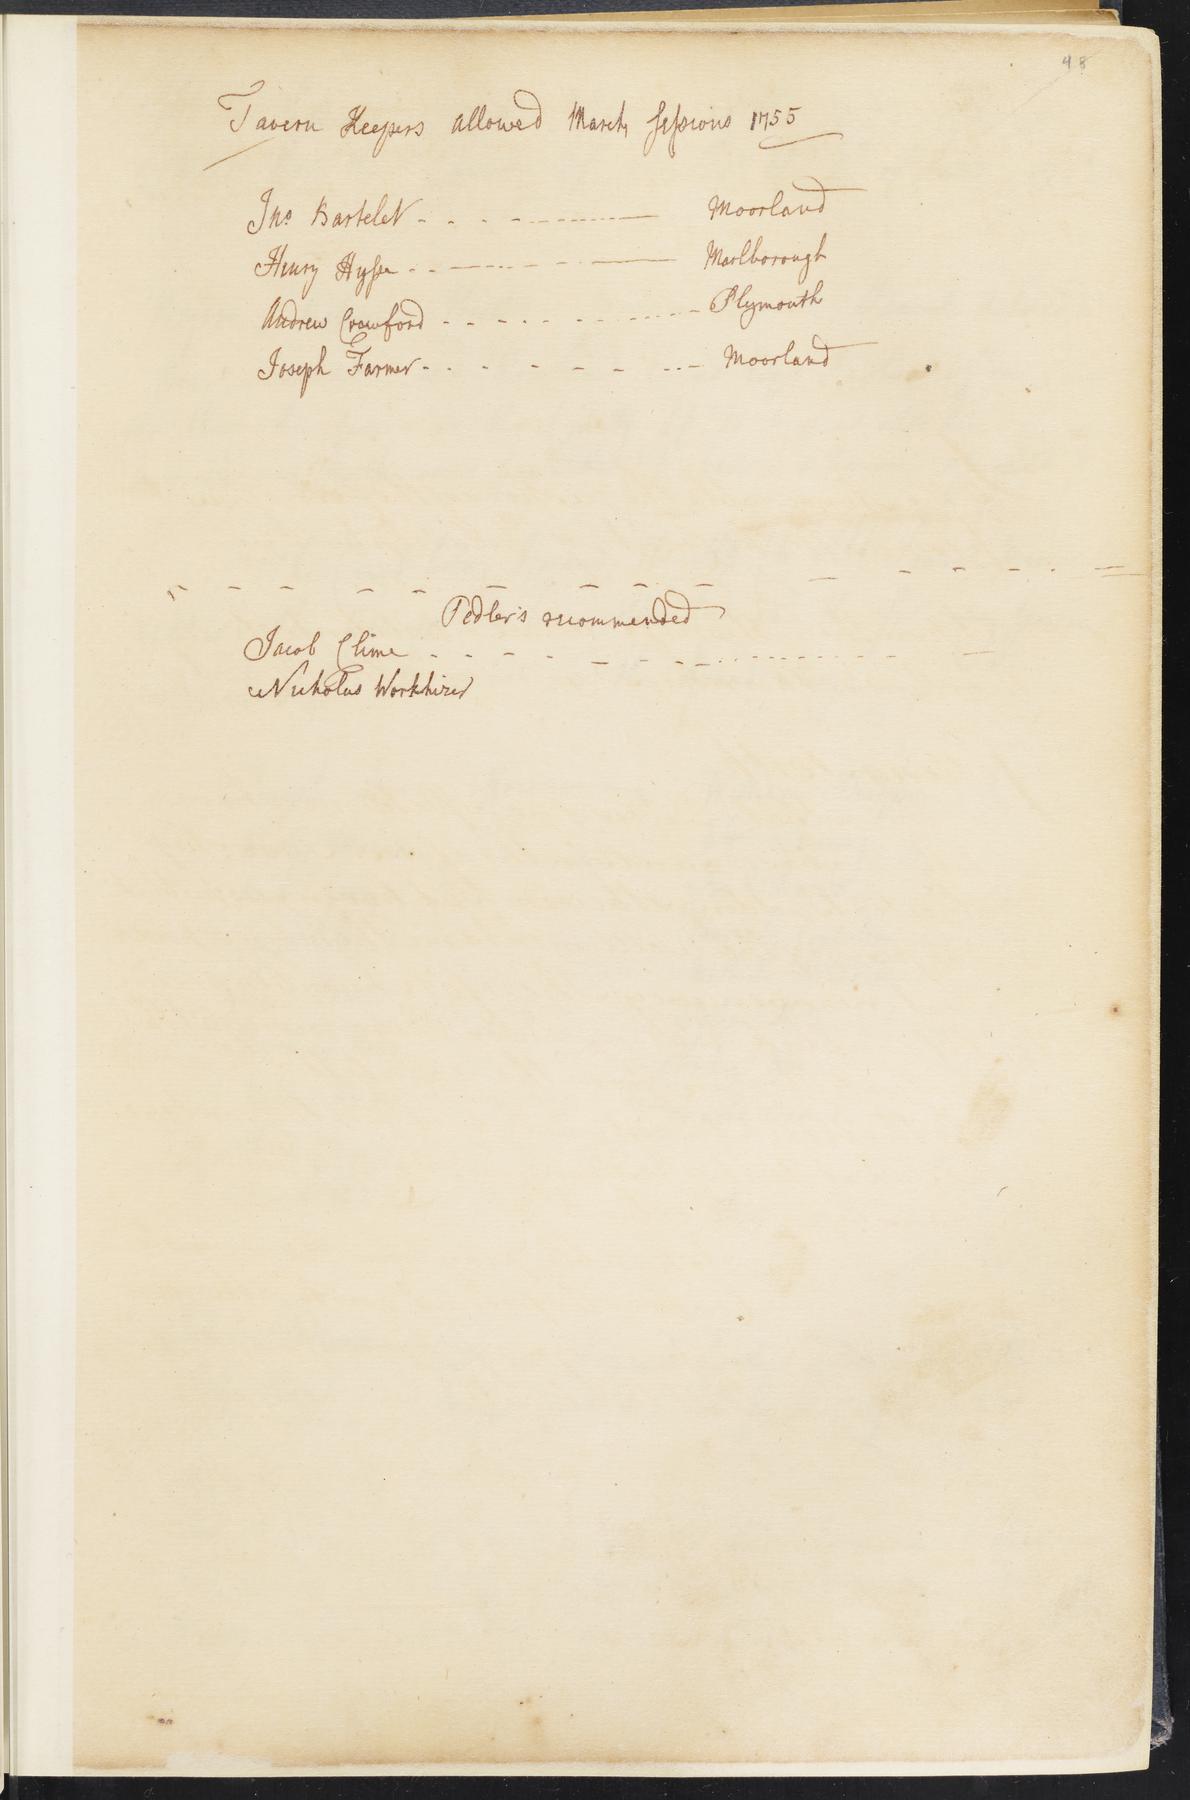 48
Tavern Keepers allowed March Sessions 1755
Jno Bartelet - - - - - - - - - Moorland
Henry Hysse - - - - - - - - Marlborough
Andrew Crawford - - - - - - - - Plymouth
Joseph Farmer - - - - - - - - - Moorland
Pedler's recommended
Jacob Clime - - - - - - - - - - - -
Nicholas Workhizer